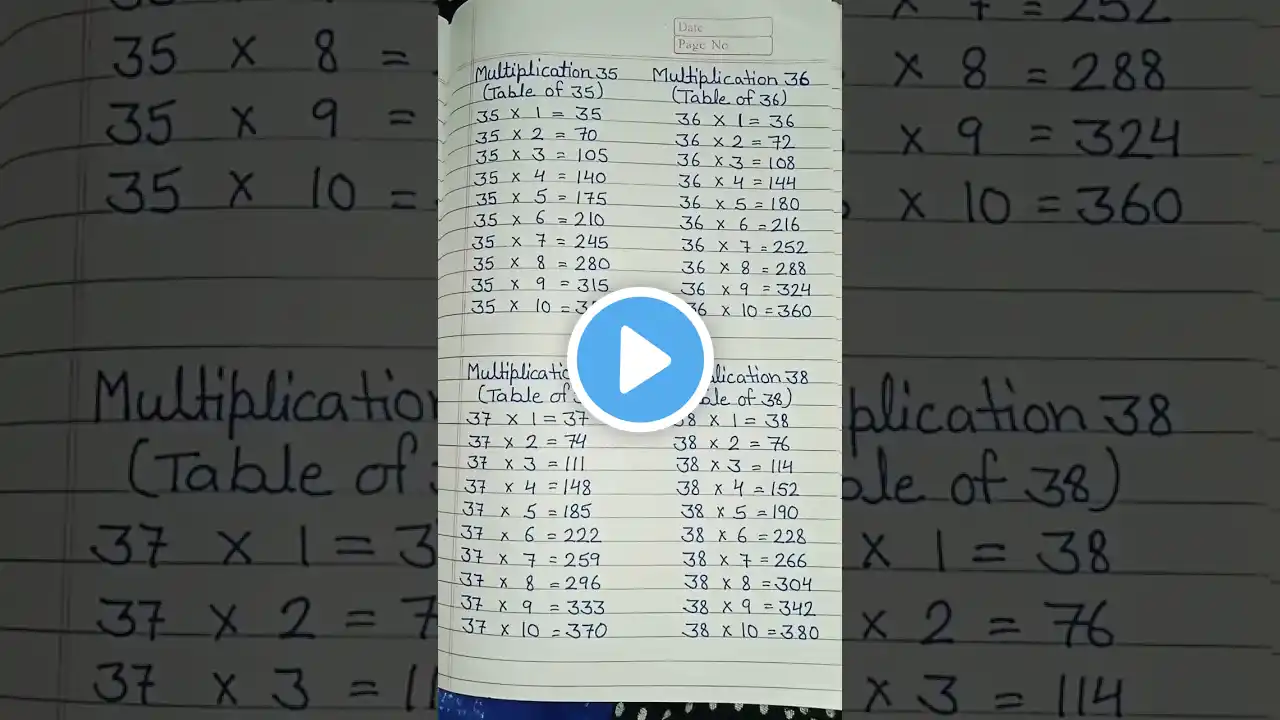 Date
Page No
Multiplication 35
(Table of 35)
35 × 1 = 35
35 × 2 = 70
35 × 3 = 105
35 × 4 = 140
35 × 5 = 175
35 × 6 = 210
35 × 7 = 245
35 × 8 = 280
35 × 9 = 315
35 × 10 =
Multiplication 36
(Table of 36)
36 × 1 = 36
36 × 2 = 72
36 × 3 = 108
36 × 4 = 144
36 × 5 = 180
36 × 6 = 216
36 × 7 = 252
36 × 8 = 288
36 × 9 = 324
36 × 10 = 360
(Table of
37 × 1 = 37
37 × 2 = 74
37 × 3 = 111
37 × 4 = 148
37 × 5 = 185
37 × 6 = 222
37 × 7 = 259
37 × 8 = 296
37 × 9 = 333
37 × 10 = 370
38
of 38)
38 × 1 = 38
38 × 2 = 76
38 × 3 = 114
38 × 4 = 152
38 × 5 = 190
38 × 6 = 228
38 × 7 = 266
38 × 8 = 304
38 × 9 = 342
38 × 10 = 380
35 × 8 =
35 × 9 =
35 × 10 =
(Table of
37 × 1 =
37 × 2 =
37 × 3 =
× 7 = 252
× 8 = 288
× 9 = 324
× 10 = 360
38
of 38)
× 1 = 38
× 2 = 76
× 3 = 114